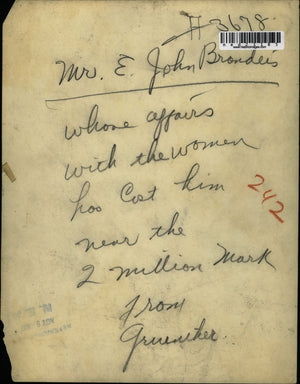 H 3678
Mr. E. John Brandeis
whose affairs
with the women
has Cost him
near the
2 million Mark
242
from
Gruenther